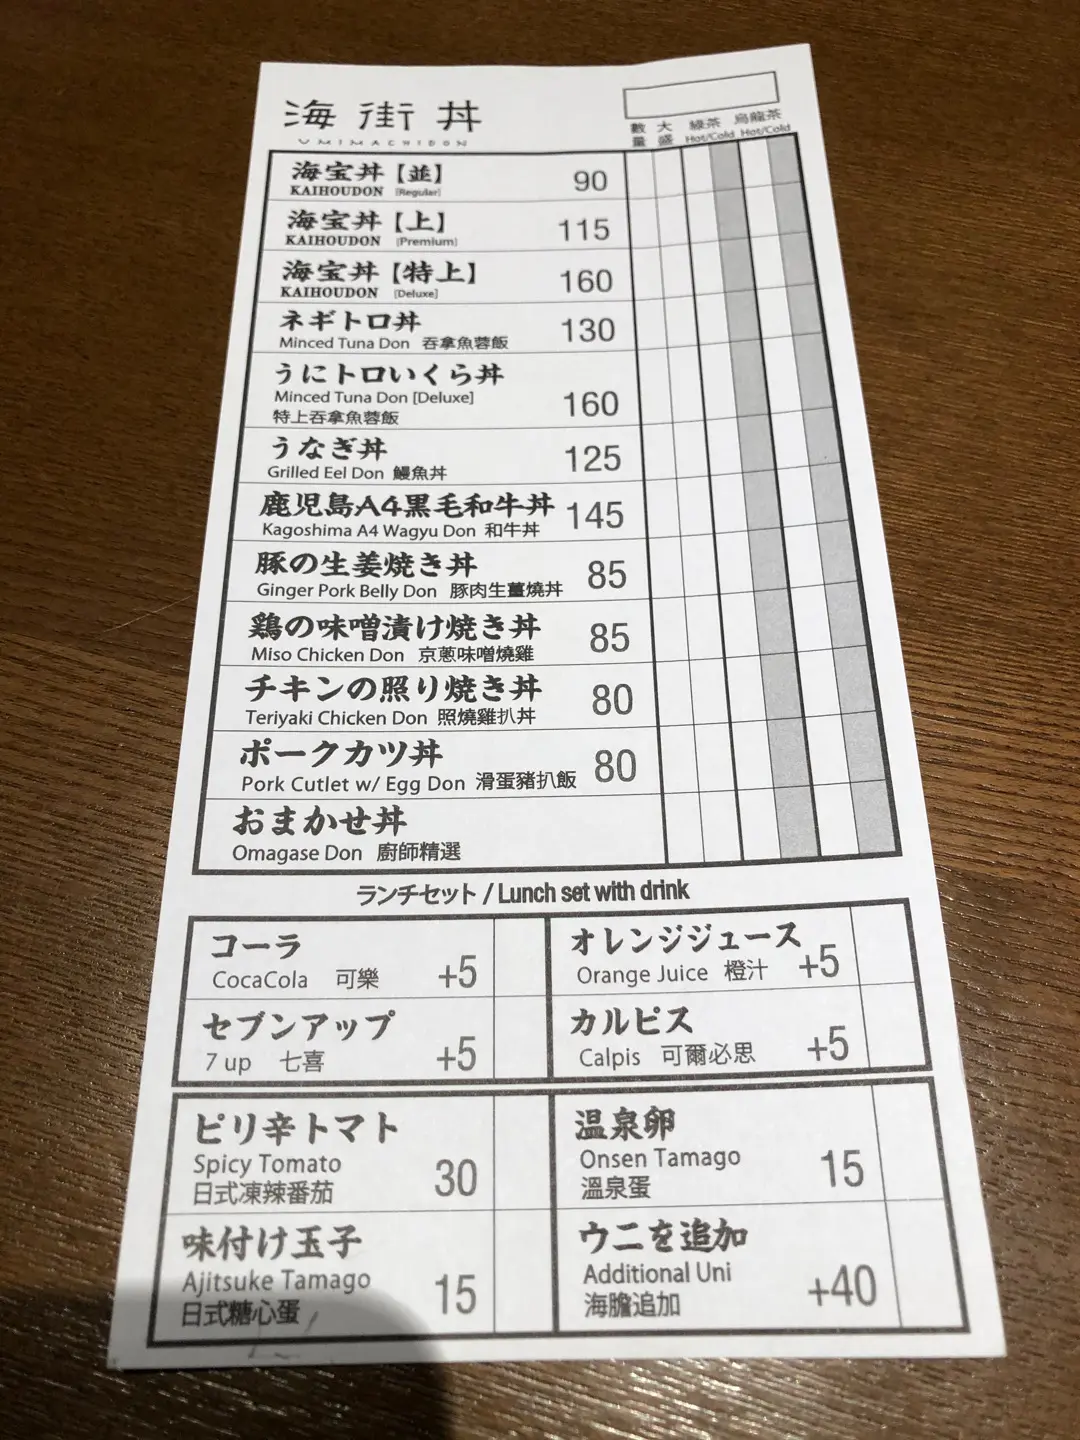 海街丼
UMIMACHIDON
數量 大盛 綠茶 烏龍茶
Hot/Cold Hot/Cold
海宝丼【並】 90
KAIHOUDON [Regular]
海宝丼【上】 115
KAIHOUDON [Premium]
海宝丼【特上】 160
KAIHOUDON [Deluxe]
ネギトロ丼 130
Minced Tuna Don 吞拿魚蓉飯
うにトロいくら丼
Minced Tuna Don [Deluxe] 160
特上吞拿魚蓉飯
うなぎ丼 125
Grilled Eel Don 鰻魚丼
鹿児島A4黒毛和牛丼 145
Kagoshima A4 Wagyu Don 和牛丼
豚の生姜焼き丼 85
Ginger Pork Belly Don 豚肉生薑燒丼
鶏の味噌漬け焼き丼 85
Miso Chicken Don 京蔥味噌燒雞
チキンの照り焼き丼 80
Teriyaki Chicken Don 照燒雞扒丼
ポークカツ丼 80
Pork Cutlet w/ Egg Don 滑蛋豬扒飯
おまかせ丼
Omagase Don 廚師精選
ランチセット / Lunch set with drink
コーラ
CocaCola 可樂 +5
オレンジジュース
Orange Juice 橙汁 +5
セブンアップ
7 up 七喜 +5
カルピス
Calpis 可爾必思 +5
ピリ辛トマト
Spicy Tomato 30
日式凍辣番茄
温泉卵
Onsen Tamago 15
溫泉蛋
味付け玉子
Ajitsuke Tamago 15
日式糖心蛋
ウニを追加
Additional Uni +40
海膽追加